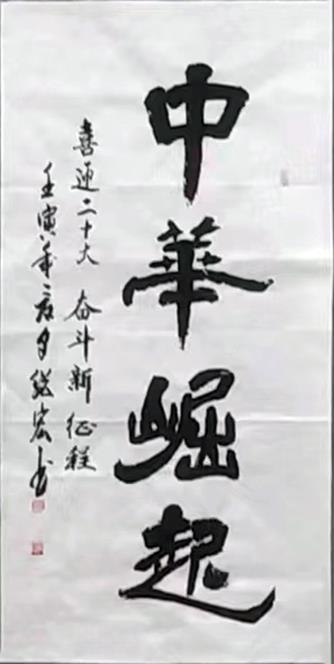 中華崛起
喜迎二十大 奋斗新征程
壬寅年之夏月继宏书